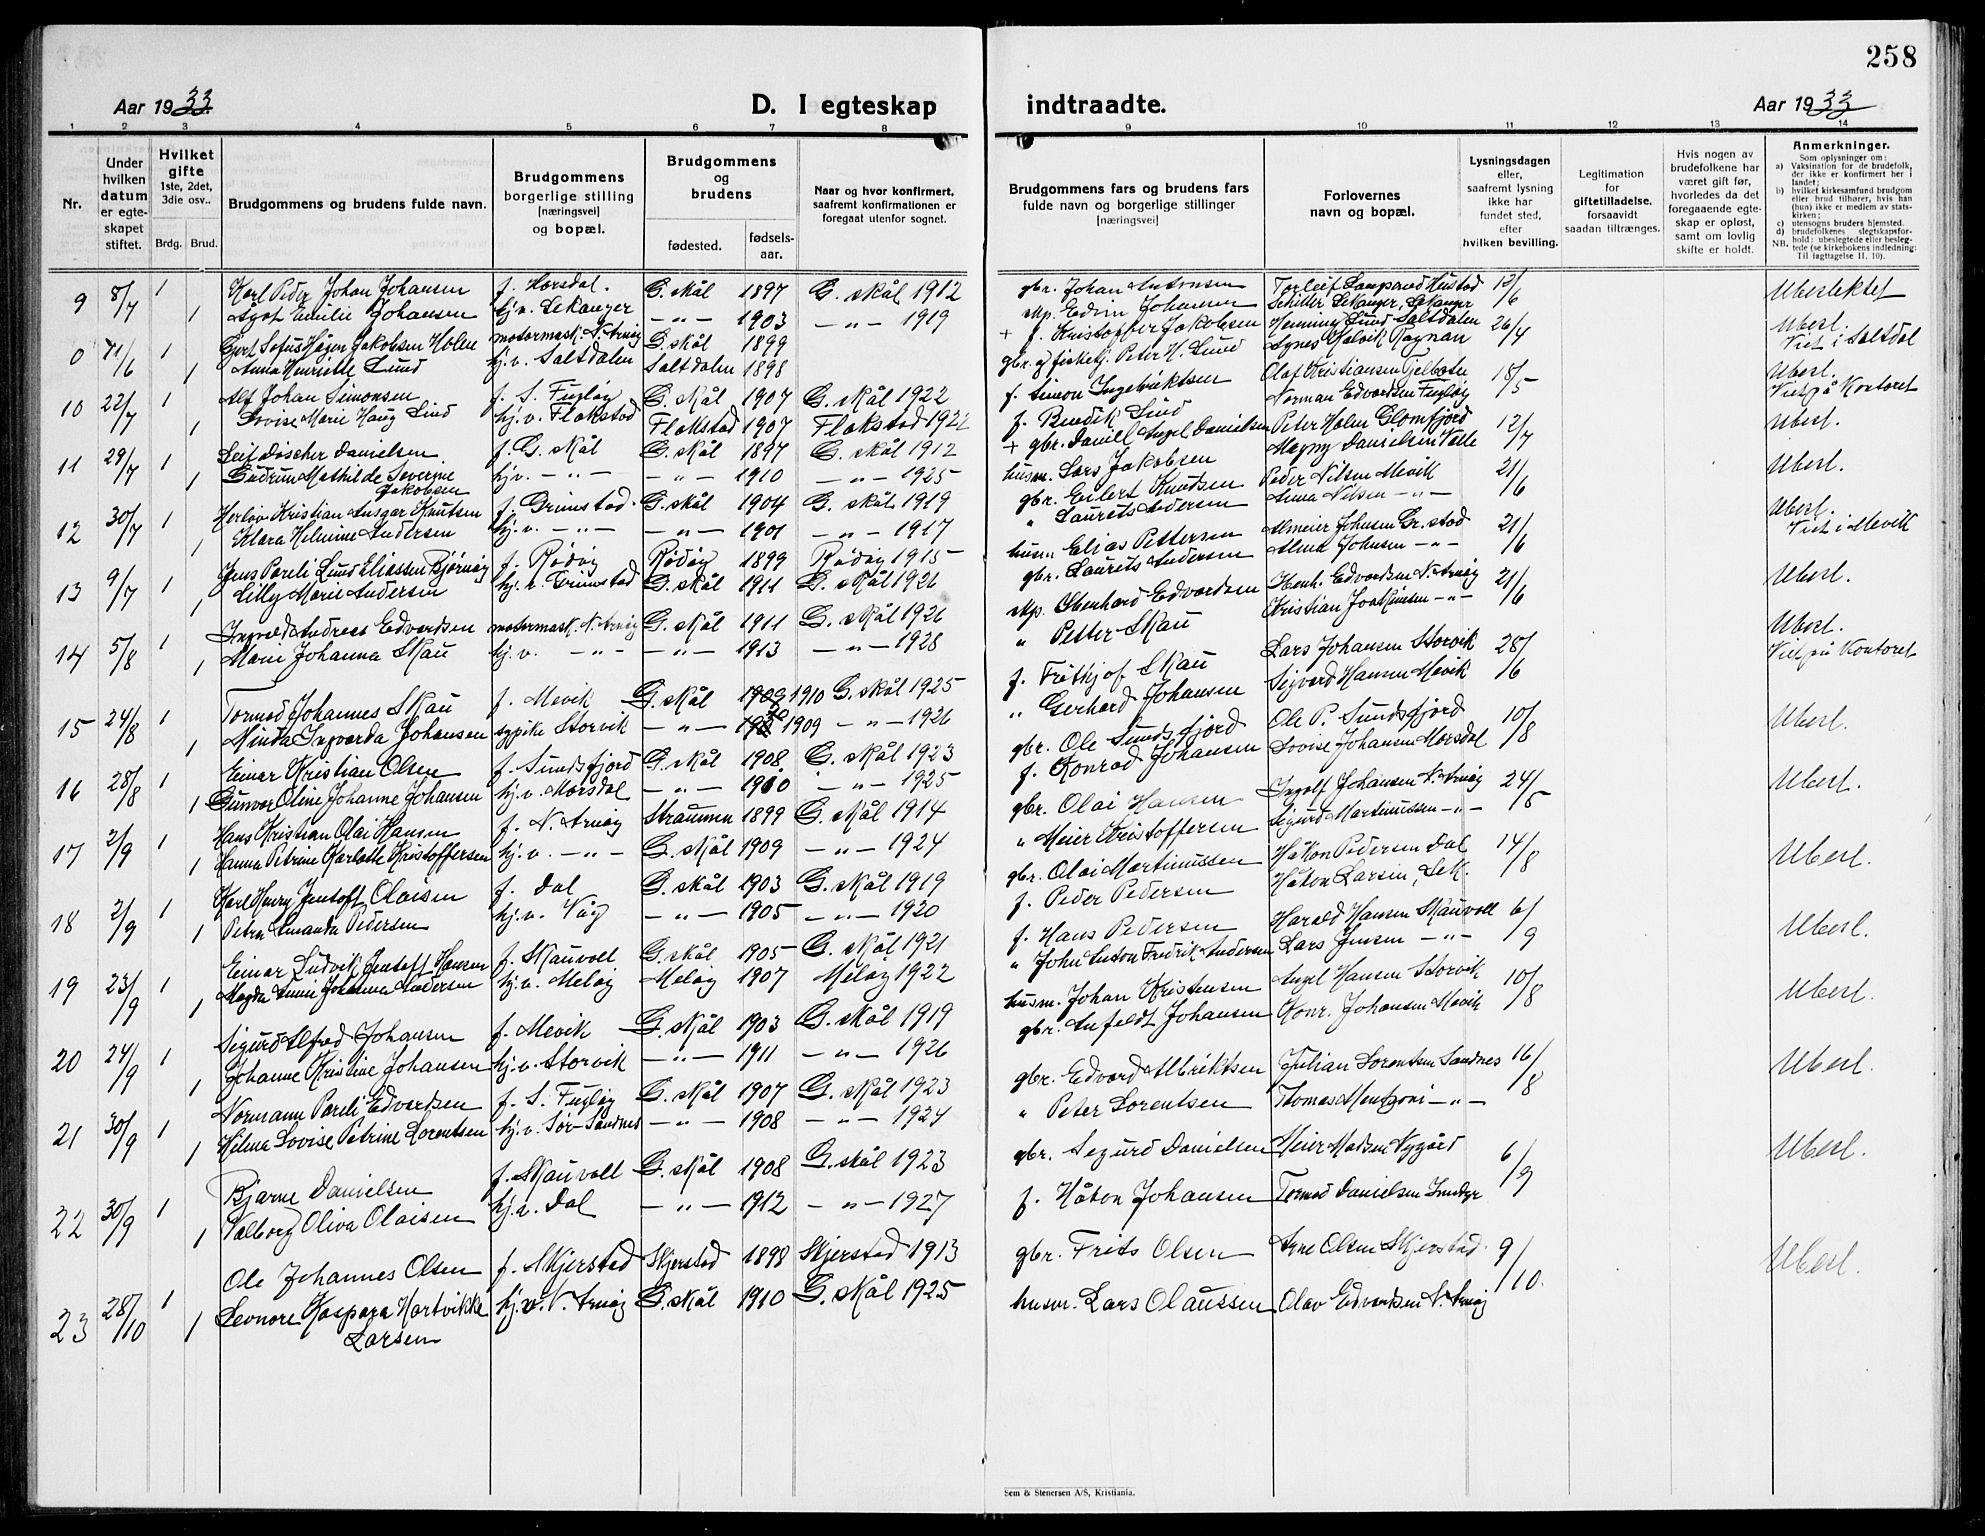 258
Aar 1933
D. I egteskap
indtraadte.
Aar 1933
1 2 3 4 5 6 7 8 9 10 11 12 13 14
Nr.
Under hvilken datum er egteskapet stiftet.
Hvilket gifte 1ste, 2det, 3die osv..
Brdg. Brud.
Brudgommens og brudens fulde navn.
Brudgommens borgerlige stilling [næringsvei] og bopæl.
Brudgommens og brudens
fødested. fødselsaar.
Naar og hvor konfirmert, saafremt konfirmationen er foregaat utenfor sognet.
Brudgommens fars og brudens fars fulde navn og borgerlige stillinger [næringsvei]
Forlovernes navn og bopæl.
Lysningsdagen eller, saafremt lysning ikke har fundet sted, efter hvilken bevilling.
Legitimation for giftetilladelse, forsaavidt saadan tiltrænges.
Hvis nogen av brudefolkene har været gift før, hvorledes da det foregaaende egteskap er opløst, samt om lovlig skifte er holdt.
Anmerkninger.
Som oplysninger om:
a) Vaksination for de brudefolk, der ikke er konfirmert her i landet;
b) hvilket kirkesamfund brudgom eller brud tilhører, hvis han (hun) ikke er medlem av statskirken;
c) utensogns bruders hjemsted.
d) brudefolkenes slegtskapsforhold: ubeslegtede eller beslegtede (se kirkebokens indledning: Til iagttagelse II, 10).
NB.
9 8/7 1 Karl Peder Johan Johansen f. Horsdal. G. skål 1897 G. skål 1912 gbr. Johan Antonsen 13/6 Ubeslektet
1 Agot Emilie Johansen hj.v. Lekanger -"- 1903 -"- 1919 skp. Edvin Johansen Schiller Lekanger, Lekanger
0 11/6 1 Gert Sofus Hagen Jakobsen Holm motormask. N. Arnøy G. skål 1899 + f. Kristoffer Jakobsen Henning Lund Saltdalen 26/4 Ubesl.
1 Anna Henriette Lund hj.v. Saltdalen Saltdalen 1898 gbr. og fiskehj. Peter H. Lund Agnes Rognan Viet i Saltdal
10 22/7 1 Alf Johan Simonsen f. S. Fugløy G. skål 1907 G. skål 1922 f. Simon Ingebriktsen Olaf Kristiansen 18/5 Ubesl.
1 Lovise Marie Haug Lind hj.v. Flakstad Flakstad 1907 Flakstad 1922 f. Bendik Lind Norman Edvardsen Fugløy Viet på Kontoret
11 29/7 1 Leif Døscher Danielsen f. G. skål G. skål 1897 G. skål 1912 + gbr. Daniel Angel Danielsen Peter Holm Glomfjord 12/7 Ubesl.
1 Gudrun Mathilde Severine Jakobsen hj.v. -"- -"- 1910 -"- 1925 husm. Lars Jakobsen Magny Danielsen Valle
12 30/7 1 Herlov Kristian Ansgar Knutsen f. Grimstad. G. skål 1904 G. skål 1919 gbr. Eilert Knudsen Peder Nilsen Mevik 21/6 Ubesl.
1 Klara Helmine Andersen hj.v. -"- -"- 1901 -"- 1917 " Laurits Andersen Anna Nilsen -"-
13 9/7 1 Jens Pareli Lund Eliassen Bjørnøy f. Rødøy Rødøy 1899 Rødøy 1915 husm. Elias Pettersen Almeier Johnsen Gr. stad 21/6 Ubesl.
1 Lilly Marie Andersen hj.v. Grimstad G. skål 1911 G. skål 1926 gbr. Laurits Andersen Alma Johnsen -"- Viet i Mevik
14 5/8 1 Ingvald Andreas Edvardsen motormask. N. Arnøy G. skål 1911 G. skål 1926 skp. Eberhard Edvardsen Henh. Edvardsen N. Arnøy 21/6 Ubesl.
1 Marie Johanna Skau hj.v. -"- -"- 1913 -"- 1928 " Petter Skau Kristian Joakimsen -"-
15 24/8 1 Tormod Johannes Skau f. Mevik G. skål 1909 1910 G. skål 1925 f. Fritjof Skau Lars Johansen Storvik 28/6 Ubesl.
1 Minda Ingvarda Johansen sypike Storvik -"- 1909 -"- 1926 " Gerhard Johansen Sigvard Hansen Mevik Viet på Kontoret
16 28/8 1 Einar Kristian Olsen f. Sundsfjord G. skål 1908 G. skål 1923 gbr. Ole Sundsfjord Ole P. Sundsfjord 10/8 Ubesl.
1 Gunvor Oline Johanne Johansen hj.v. Morsdal -"- 1910 -"- 1925 f. Konrad Johansen Lovise Johansen Morsdal
17 2/9 1 Hans Kristian Olai Hansen f. N. Arnøy Straumen 1899 G. skål 1914 gbr. Olai Hansen Ingolf Johansen N. Arnøy 24/5 Ubesl.
1 Hanna Petrine Karlotte Kristoffersen hj.v. -"- G. skål 1909 -"- 1924 " Meier Kristoffersen Sigurd Martinussen -"-
18 2/9 1 Karl Henry Jentoft Olaisen f. Dal G. skål 1903 G. skål 1919 gbr. Olai Martinussen Håkon Pedersen Dal 14/8 Ubesl.
1 Petra Amanda Pedersen hj.v. Våg -"- 1905 -"- 1920 f. Peder Pedersen Håkon Larsen, Sek.
19 23/9 1 Einar Ludvik Jentoft Hansen f. Skauvoll G. skål 1905 G. skål 1921 f. Hans Pedersen Harald Hansen Skauvoll 6/9 Ubesl.
1 Magda Annie Johanna Andersen hj.v. Meløy Meløy 1907 Meløy 1922 " John Anton Fredrik Andersen Lars Jensen -"-
20 24/9 1 Sigurd Alfred Johansen f. Mevik G. skål 1903 G. skål 1919 husm. Johan Kristensen Angel Hansen Storvik 10/8 Ubesl.
1 Johanne Kristine Johansen hj.v. Storvik -"- 1911 -"- 1926 gbr. Anfeldt Johansen Konr. Johansen Mevik
21 30/9 1 Normann Pareli Edvardsen f. S. Fugløy G. skål 1907 G. skål 1923 gbr. Edvard Albriktsen Julian Lorentsen Sandnes 16/8 Ubesl.
1 Hilma Lovise Petrine Lorentsen hj.v. Sør-Sandnes -"- 1908 -"- 1924 " Peter Lorentsen Thomas Mentzoni -"-
22 30/9 1 Bjarne Danielsen f. Skauvoll G. skål 1908 G. skål 1923 gbr. Sigurd Danielsen Meier Madsen Nygård 6/9 Ubesl.
1 Valborg Oliva Olaisen hj.v. Dal -"- 1912 -"- 1927 f. Håkon Johansen Tormod Danielsen
23 28/10 1 Ole Johannes Olsen f. Skjerstad Skjerstad 1898 Skjerstad 1913 gbr. Frits Olsen Arne Olsen Skjerstad. 9/10. Ubesl.
1 Leonore Kaspara Hartvikke Larsen hj.v. N. Arnøy G. skål 1910 G. skål 1925 husm. Lars Olaussen Olav Edvardsen N. Arnøy
Sem & Stenersen A/S, Kristiania.